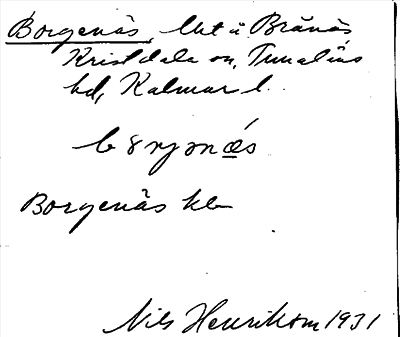 Borgenäs, lht å Bränäs
Kristdala sn, Tunaläns
hd, Kalmar l.
Borgenäs
Nils Henrikson 1931